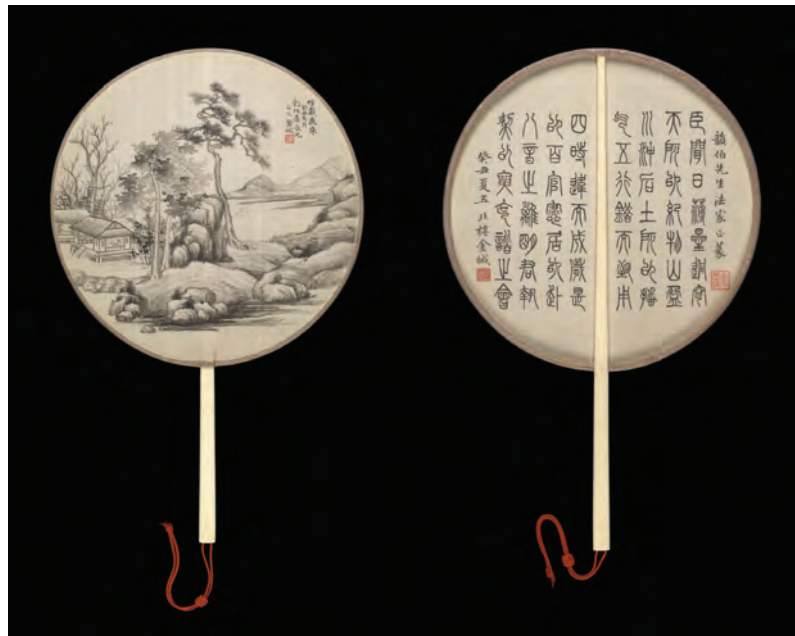 韻伯先生法家正篆
臣聞日薄星迴穹
天所以紀物山盈
川沖后土所以播
气五行錯而致用
四時違而成歲是
以百官愙居以赴
八音之離明君執
契以要克諧之會
癸丑夏五北樓金城